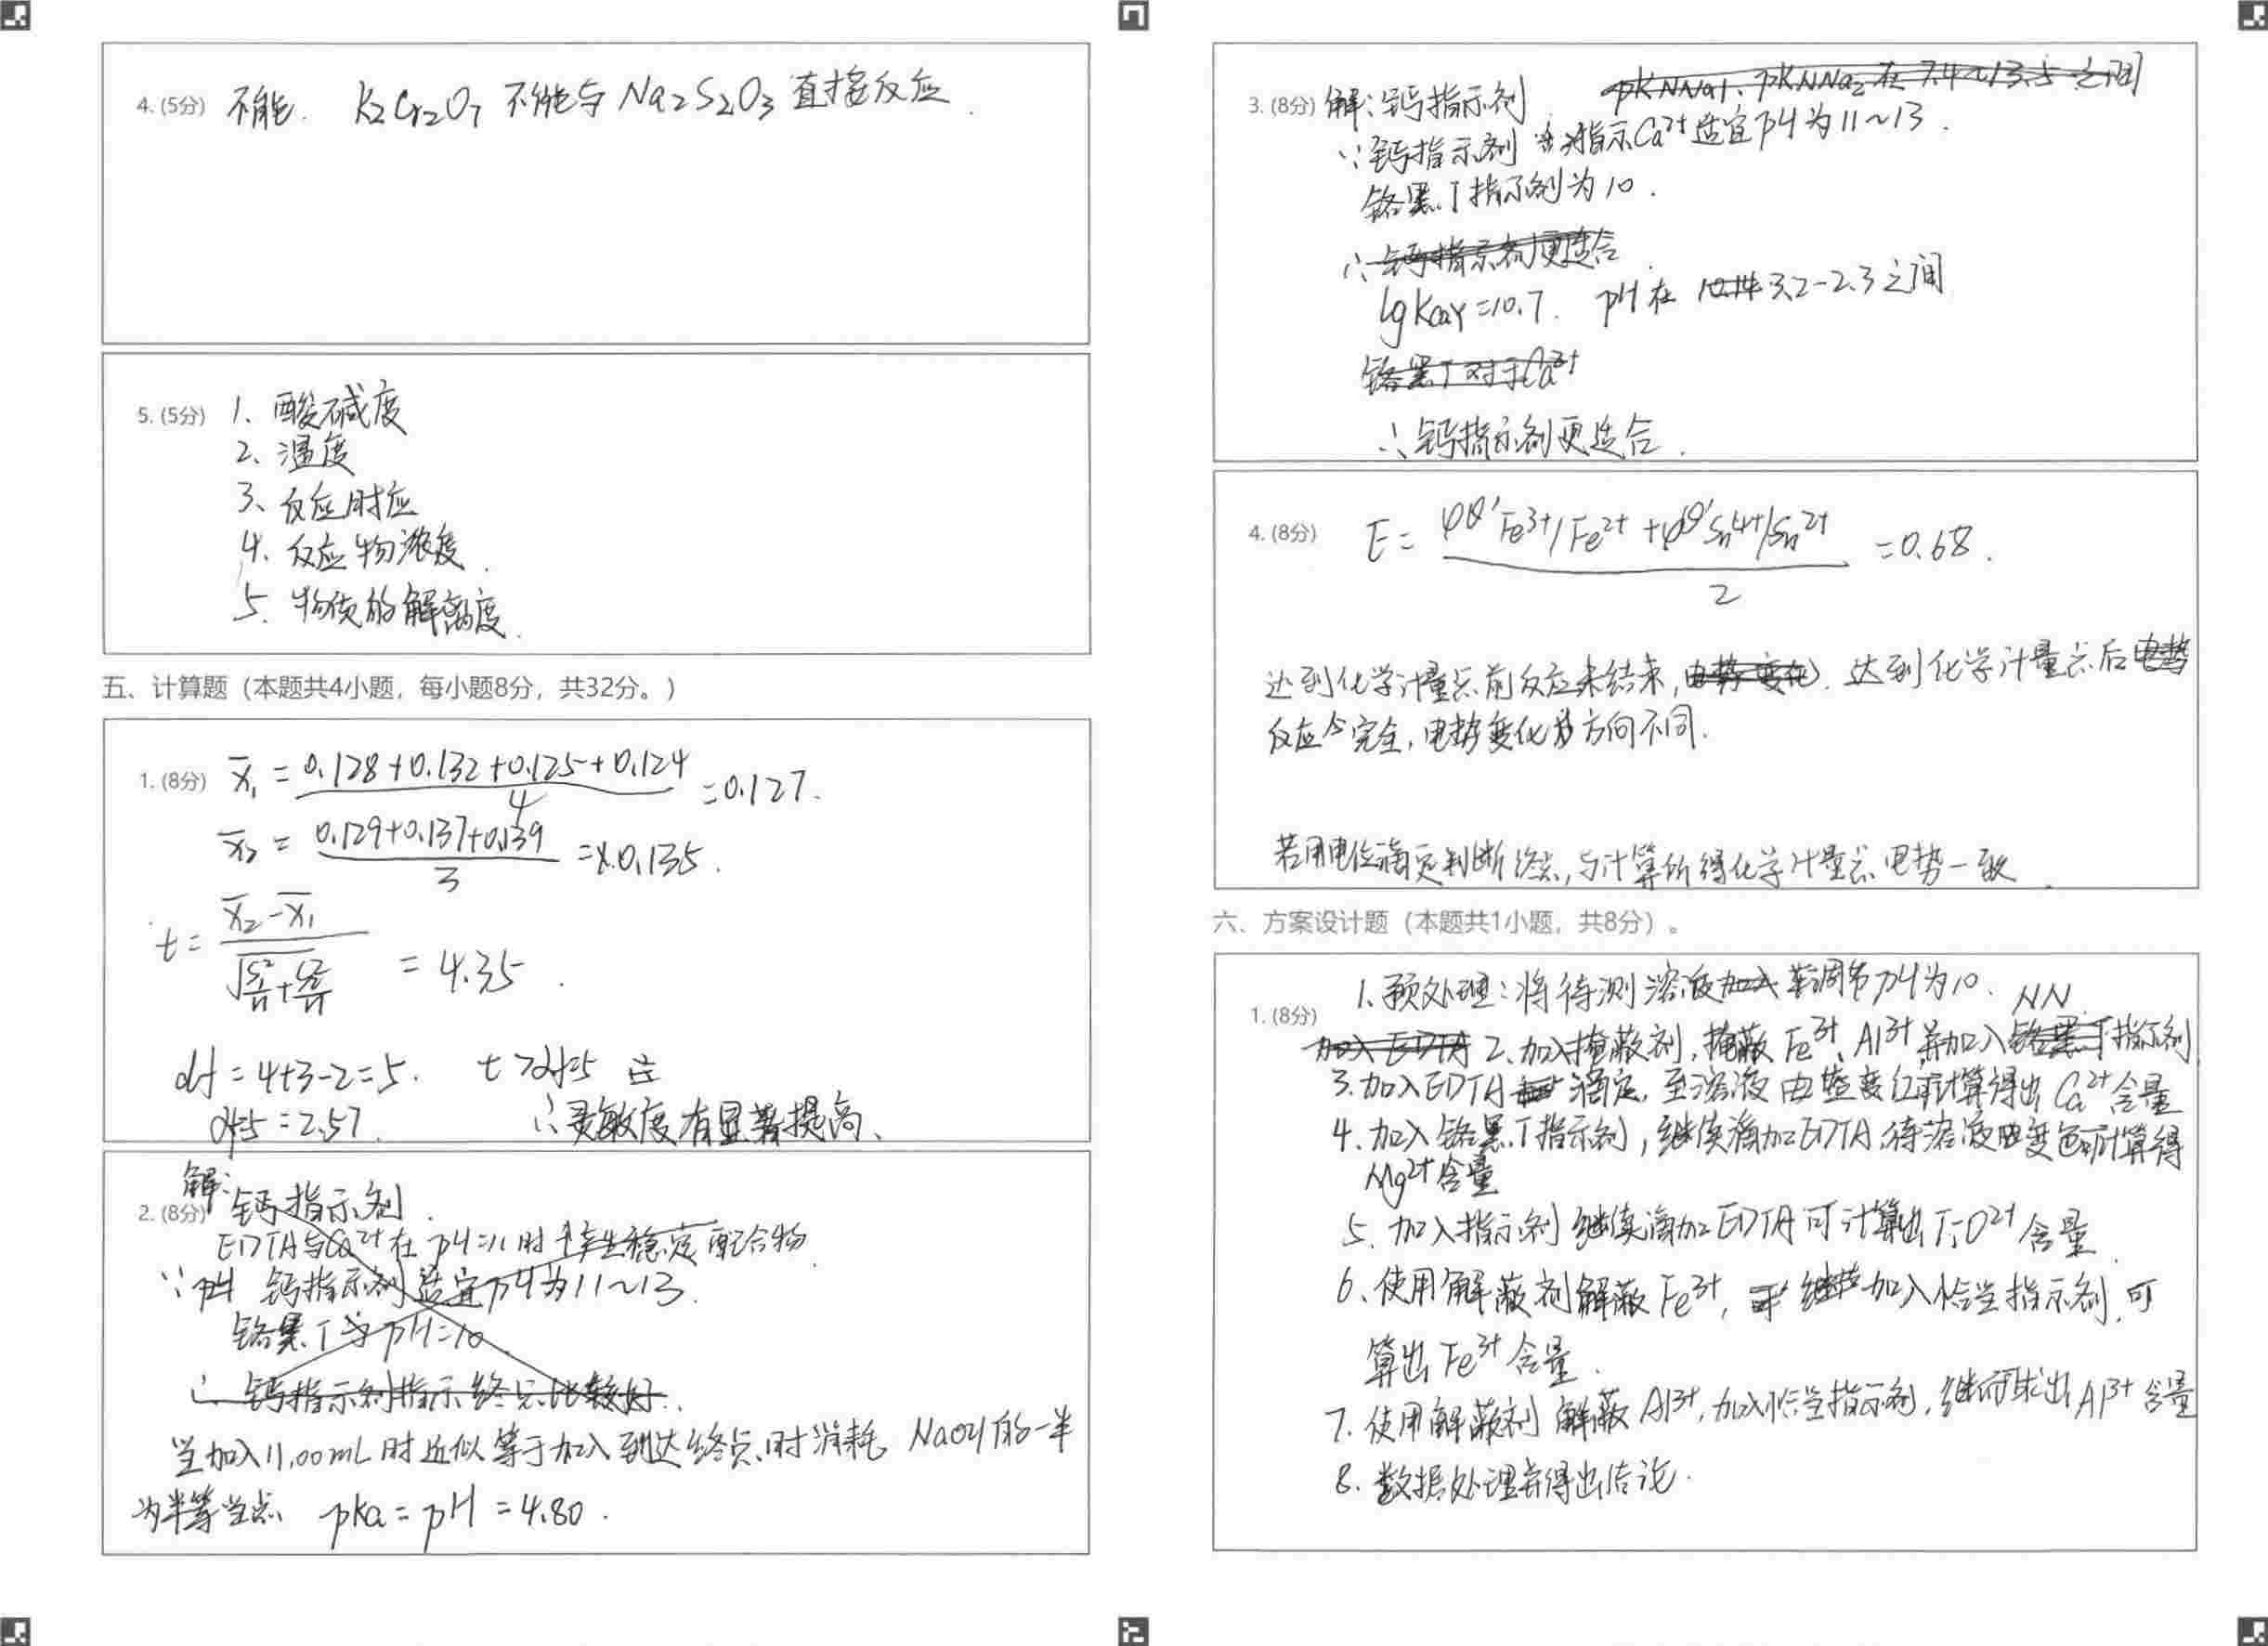 4. (5分) 不能. K₂Cr₂O₇ 不能与 Na₂S₂O₃ 直接反应.
5. (5分) 1、酸碱度
2、温度
3、反应时应
4、反应物浓度.
5、物质的解离度.
五、计算题（本题共4小题，每小题8分，共32分。）
1. (8分) x̄₁ = (0.128+0.132+0.125+0.124)/4 = 0.127.
x̄₂ = (0.129+0.137+0.139)/3 = 0.135.
t = (x̄₂ - x̄₁)/ = 4.35.
df = 4+3-2 = 5. t > df=5
df=5 = 2.57. ∴灵敏度有显著提高、
解:
2. (8分) 钙指示剂.
EDTA与Ca²⁺在pH=11时 稳定配合物.
∵pH 钙指示剂适宜pH为11~13.
铬黑T pH=10
∴ 钙指示剂指示终点比较好.
当加入11.00mL时近似等于加入到达终点时消耗 NaOH的一半
为半等当点 pKa = pH = 4.80.
3. (8分) 解:钙指示剂. pKNNa1、pKNNa2在 7.4~13.5 之间
∵钙指示剂 指示Ca²⁺适宜pH为11~13.
铬黑T指示剂为10.
∴钙指示剂更适合.
lgKCaY=10.7. pH在 3.2-2.3之间
铬黑T对于Ca²⁺
∴钙指示剂更适合.
4. (8分) E = (φθ′Fe³⁺/Fe²⁺ + φθ′Sn⁴⁺/Sn²⁺)/2 = 0.68.
达到化学计量点前反应未结束, 电势变化. 达到化学计量点后电势
反应 完全,电势变化 方向不同.
若用电位滴定判断终点,与计算所得化学计量点电势一致.
六、方案设计题（本题共1小题，共8分）。
1. (8分) 1、预处理:将待测溶液加入 调节pH为10. NN
加入EDTA 2、加入掩蔽剂,掩蔽Fe³⁺、Al³⁺,并加入铬黑T指示剂
3.加入EDTA 滴定,至溶液由 变红可计算得出Ca²⁺含量
4、加入铬黑T指示剂,继续滴加EDTA待溶液 变色可计算得
Mg²⁺含量
5、加入指示剂继续滴加EDTA可计算出TiO²⁺含量.
6、使用解蔽剂解蔽Fe³⁺, 继续加入恰当指示剂,可
算出Fe³⁺含量.
7、使用解蔽剂解蔽Al³⁺,加入恰当指示剂, 可求出Al³⁺含量
8、数据处理并得出结论.